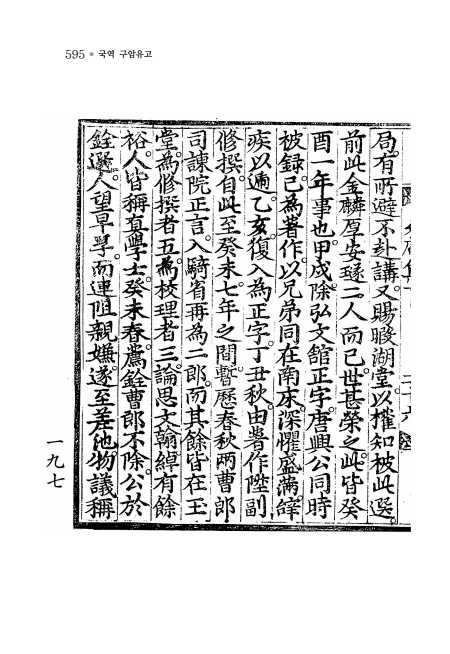 595 • 국역 구암유고
局。有所避不赴講。又賜暇湖堂。以權知被此選。
前此金麟厚安璲二人而已。世甚榮之。此皆癸
酉一年事也。甲戌除弘文館正字。唐興公同時
被錄。已爲著作。以兄弟同在南床。深懼盛滿。
疾以遞。乙亥復入爲正字。丁丑秋。由著作陞副
修撰。自此至癸未七年之間。暫歷春秋兩曹郎
司諫院正言。入騎省再爲二郎。而其餘皆在玉
堂。爲修撰者五。爲校理者三。論思文翰。綽有餘
裕。人皆稱眞學士。癸未春。薦銓曹郎不除。公於
銓選。人望早孚。而連阻親嫌。遂至差池。物議稱
一九七